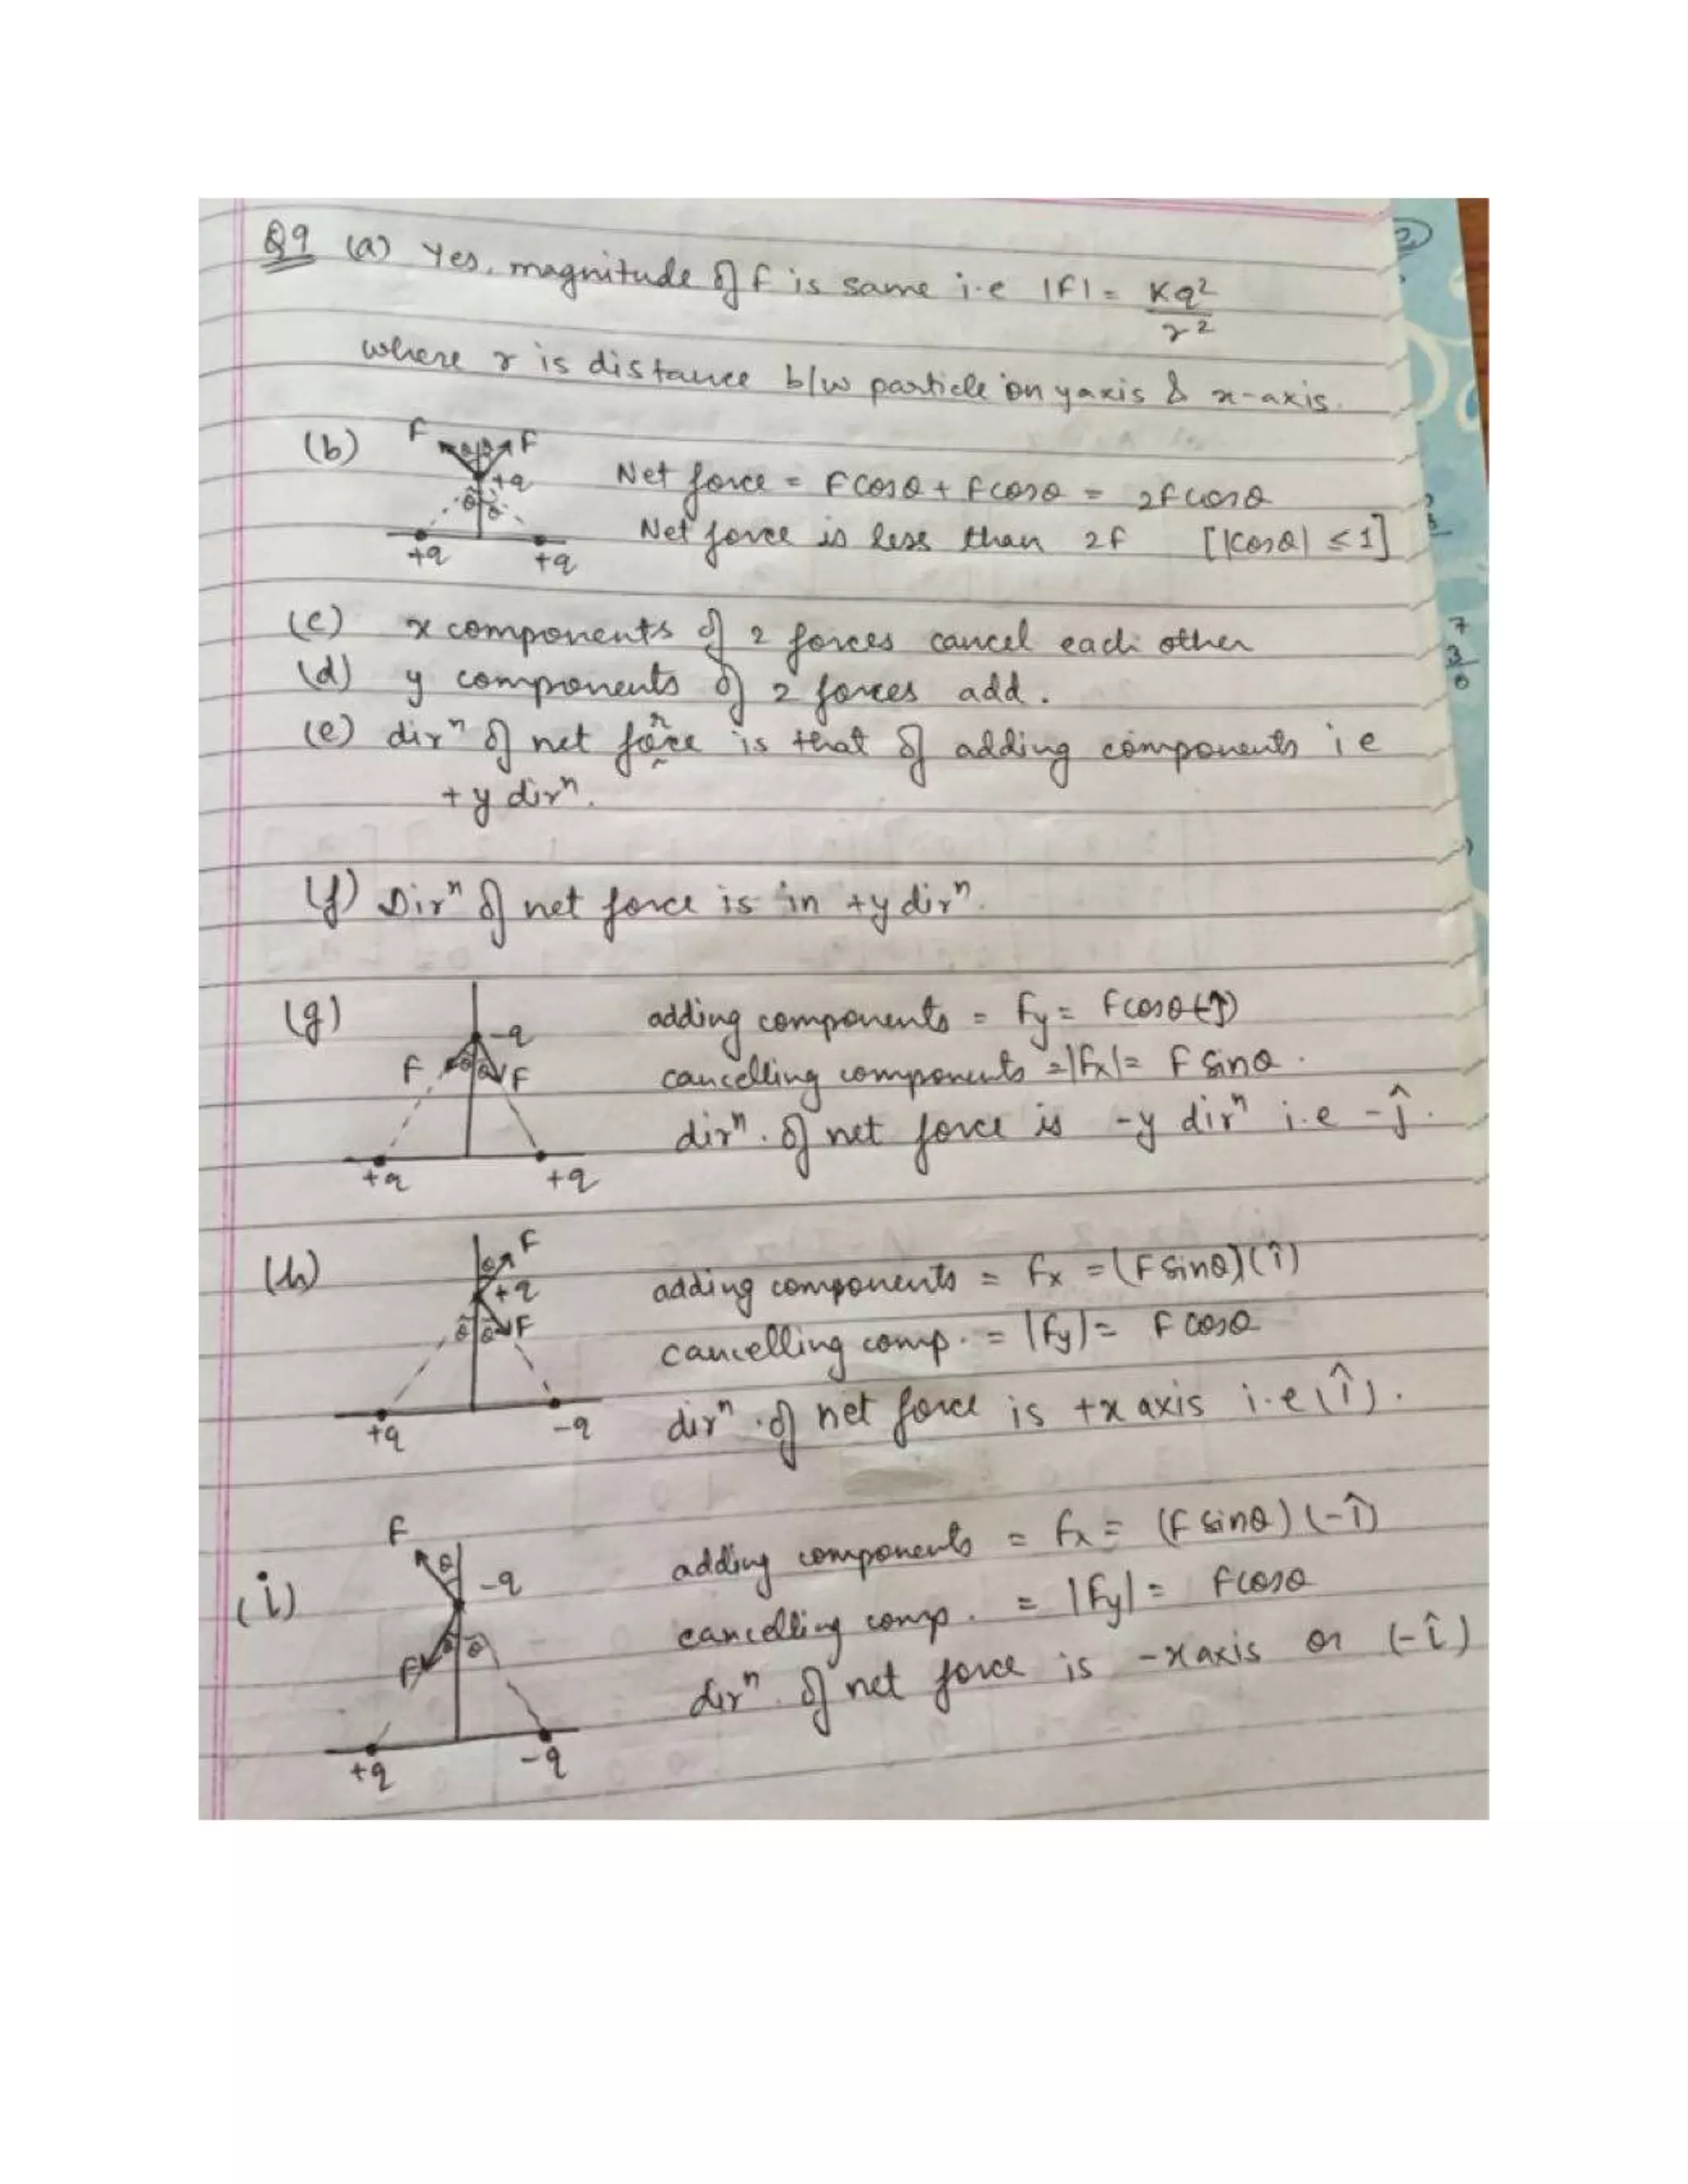 Q9 (a) Yes, magnitude of F is same i.e |F| = Kq²/r²
where r is distance b/w particle on y axis & x-axis.
(b) F F
θ θ
+q
θ θ
+q +q
Net force = Fcosθ + Fcosθ = 2Fcosθ
Net force is less than 2F [|cosθ| ≤ 1]
(c) x components of 2 forces cancel each other
(d) y components of 2 forces add.
(e) dirⁿ of net force is that of adding components i e
+y dirⁿ.
(f) Dirⁿ of net force is in +y dirⁿ.
(g) -q
F θ θ F
+q +q
adding components = Fy = Fcosθ(-ĵ)
cancelling components = |Fx| = F sinθ.
dirⁿ. of net force is -y dirⁿ i.e -ĵ.
(h) θ F
+q
θ θ F
+q -q
adding components = Fx = (F sinθ)(î)
cancelling comp. = |Fy| = F cosθ
dirⁿ. of net force is +x axis i.e (î).
(i) F
θ -q
F θ θ
+q -q
adding components = Fx = (F sinθ)(-î)
cancelling comp. = |Fy| = Fcosθ
dirⁿ. of net force is -x axis or (-î)
7
3
0